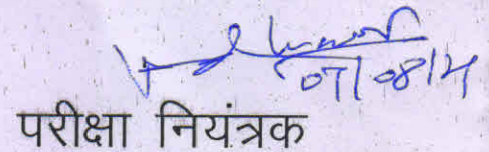 07/08/14
परीक्षा नियंत्रक